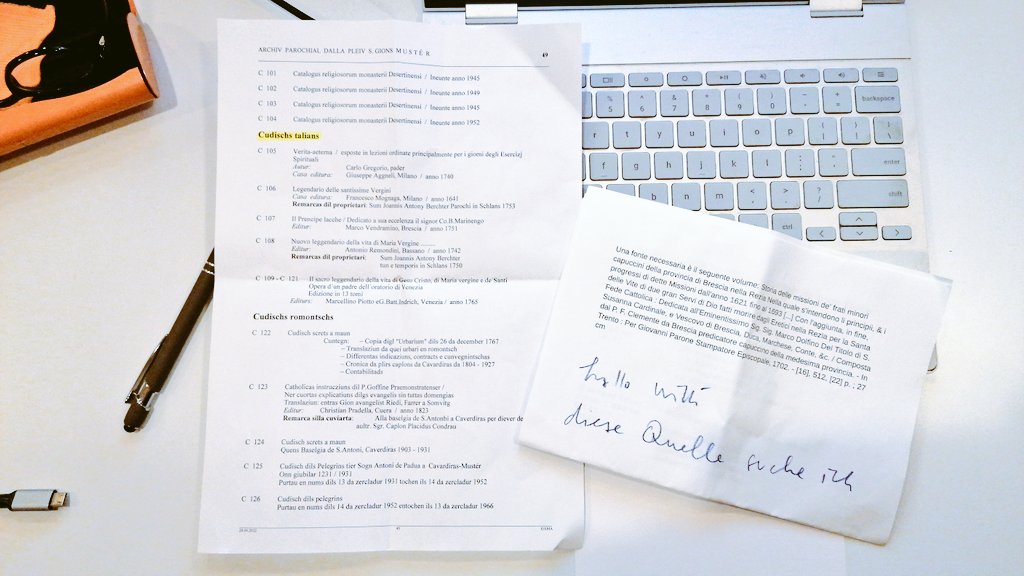 ARCHIV PAROCHIAL DALLA PLEIV S. GIONS MUSTÉR 49
C 101 Catalogus religiosorum monasterii Desertinensi / Ineunte anno 1945
C 102 Catalogus religiosorum monasterii Desertinensi / Ineunte anno 1949
C 103 Catalogus religiosorum monasterii Desertinensi / Ineunte anno 1945
C 104 Catalogus religiosorum monasterii Desertinensi / Ineunte anno 1952
Cudischs talians
C 105 Verita-aeterna / esposte in lezioni ordinate principalmente per i giorni degli Esercizj
Spirituali
Autur: Carlo Gregorio, pader
Casa editura: Giuseppe Aggneli, Milano / anno 1740
C 106 Legendario delle santissime Vergini
Casa editura: Francesco Mognaga, Milano / anno 1641
Remarcas dil proprietari: Sum Joannis Antony Berchter Parochi in Schlans 1753
C 107 Il Prencipe Iacche / Dedicato a sua eccelenza il signor Co.B.Marinengo
Editur: Marco Vendramino, Brescia / anno 1751
C 108 Nuovo leggendario della vita di Maria Vergine ........
Editur: Antonio Remondini, Bassano / anno 1742
Remarcas dil proprietari: Sum Joannis Antony Berchter
tun e temporis in Schlans 1750
C 109 - C 121 Il sacro leggendario della vita di Gesu Cristo, di Maria vergine e de'Santi
Opera d'un padre dell'oratorio di Venezia
Edizione in 13 tomi
Editurs: Marcellino Piotto eG.Batt.Indrich, Venezia / anno 1765
Cudischs romontschs
C 122 Cudisch screts a maun
Cuntegn: – Copia digl "Urbarium" dils 26 da december 1767
– Translaziun da quei urbari en romontsch
– Differentas indicaziuns, contracts e convegnintschas
– Cronica da plirs caplons da Cavardiras da 1804 - 1927
– Contabilitads
C 123 Catholicas instrucziuns dil P.Goffine Praemonstratenser /
Ner cuortas explicatiuns dilgs evangelis sin tuttas domengias
Translaziun: entras Gion avangelist Riedi, Farrer a Somvitg
Editur: Christian Pradella, Cuera / anno 1823
Remarca silla cuviarta: Alla baselgia de S.Antonbi a Caverdiras per diever de
aultr. Sgr. Caplon Placidus Condrau
C 124 Cudisch screts a maun
Quens Baselgia de S.Antoni, Caverdiras 1903 - 1931
C 125 Cudisch dils Pelegrins tier Sogn Antoni de Padua a Cavardiras-Mustér
Onn giubilar 1231 / 1931
Purtau en nums dils 13 da zercladur 1931 tochen ils 14 da zercladur 1952
C 126 Cudisch dils pelegrins
Purtau en nums dils 14 da zercladur 1952 entochen ils 13 da zercladur 1966
Una fonte necessaria é il seguente volume: Storia delle missioni de' frati minori
capuccini della provincia di Brescia nella Rezia Nella quale s'intendono li principii, & i
progressi di dette Missioni dall'anno 1621 fino al 1693 [...] Con l'aggiunta, in fine,
delle Vite di due gran Servi di Dio fatti morire dagli Eretici nella Rezia per la Santa
Fede Cattolica : Dedicata all'Eminentissimo Sig. Sig. Marco Dolfino Del Titolo di S.
Susanna Cardinale, e Vescovo di Brescia, Duca, Marchese, Conte, &c. / Composta
dal P. F. Clemente da Brescia predicatore capuccino della medesima provincia. - In
Trento : Per Giovanni Parone Stampatore Episcopale, 1702. - [16], 512, [22] p. ; 27
cm
hallo
diese Quelle suche ich
backspace
% 5 ^ 6 & 7 * 8 ( 9 ) 0 - + =
r t y u i o p { [ } ] | \
f g h j k l : ; enter
b n m < , > . ? / shift
ctrl